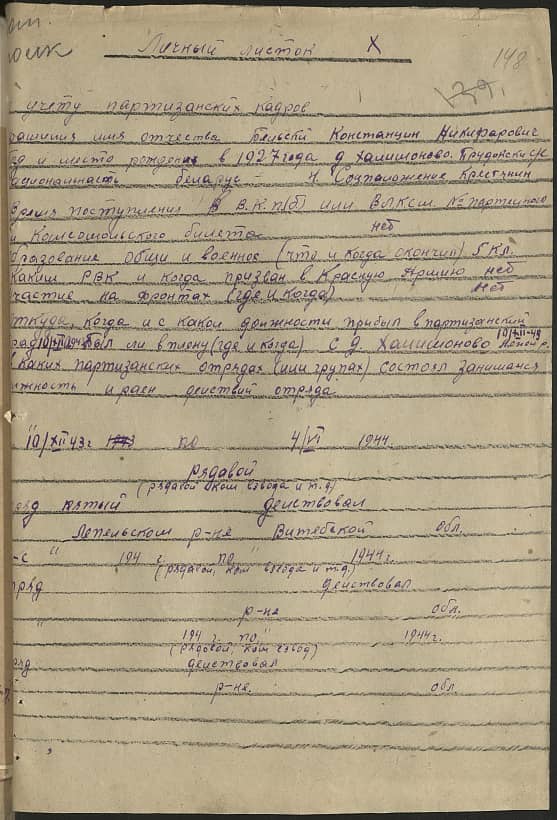 Личный листок X
148
139
учету партизанских кадров
фамилия имя отчества Бельский Констанцин Никифарович
год и место рождения в 1927 года д Халимоново. Прудокски с/с
национальность беларус - Соцположение Крестьянин
Время поступления в В.К.п(б) или ВЛКсм. № партийного
и Комсомольского билета нет
бразование общи и военное (что и когда окончил) 5 Кл.
Каким РВК и когда призван в Красную Армию нет
частие на фронтах (где и когда) нет
ткуда, когда и с какой должности прибыл в партизанский
был ли в плену (где и когда) с д. Халимоново
каких партизанских отрядах (или групах) состоял занимался
лжность и раен действий отряда
"10/XII 43г по 4/VI 1944.
рядавой
(рядавой ком взвода и т.д)
ряд пятый действовал
Лепельском р-не Витебской обл.
-с " 194 г. по " 1944г.
(рядавой, ком взвода и т.д.)
тряд действовал
" р-не обл.
194 г. по " 1944г.
(рядовой, ком взвод)
ряд действовал
р-не. обл.